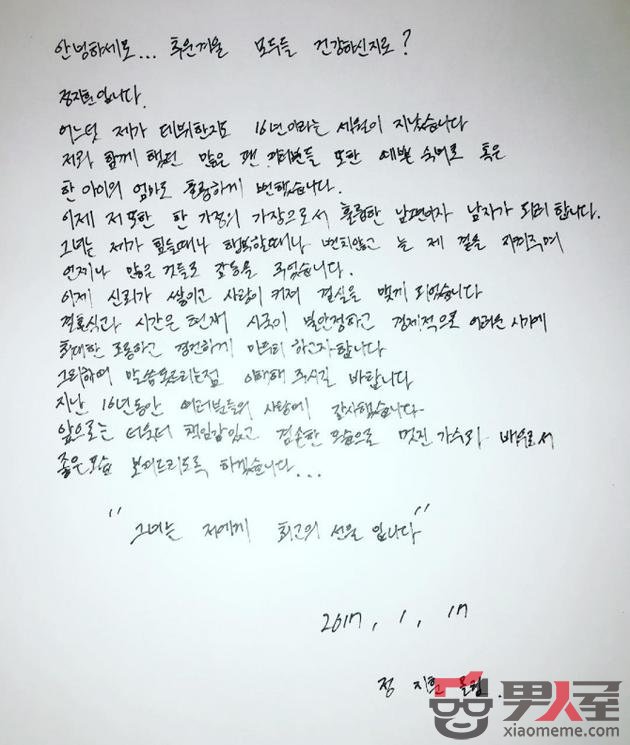 안녕하세요... 추운겨울 모두들 건강하신지요?
정지훈입니다.
어느덧 제가 데뷔한지도 16년이라는 세월이 지났습니다
저와 함께 했던 많은 팬 여러분들 또한 예쁜 숙녀로 혹은
한 아이의 엄마로 훌륭하게 변했습니다.
이제 저 또한 한 가정의 가장으로서 훌륭한 남편이자 남자가 되려 합니다.
그녀는 제가 힘들때나 행복할때나 변치않고 늘 제 곁을 지켜주며
언제나 많은 것들로 감동을 주었습니다.
이제 신뢰가 쌓이고 사랑이 커져 결실을 맺게 되었습니다
결혼식과 시간은 현재 시국이 불안정하고 경제적으로 어려운 시기에
최대한 조용하고 경건하게 마무리 하고자합니다
그리하여 말씀못드리는점 이해해 주시길 바랍니다
지난 16년동안 여러분들의 사랑에 감사했습니다
앞으로는 더욱더 책임감있고 겸손한 모습으로 멋진 가수와 배우로서
좋은모습 보여드리도록 하겠습니다...
"그녀는 저에게 최고의 선물 입니다"
2017, 1, 17
정 지훈 올림.
男人屋
xiaomeme.com